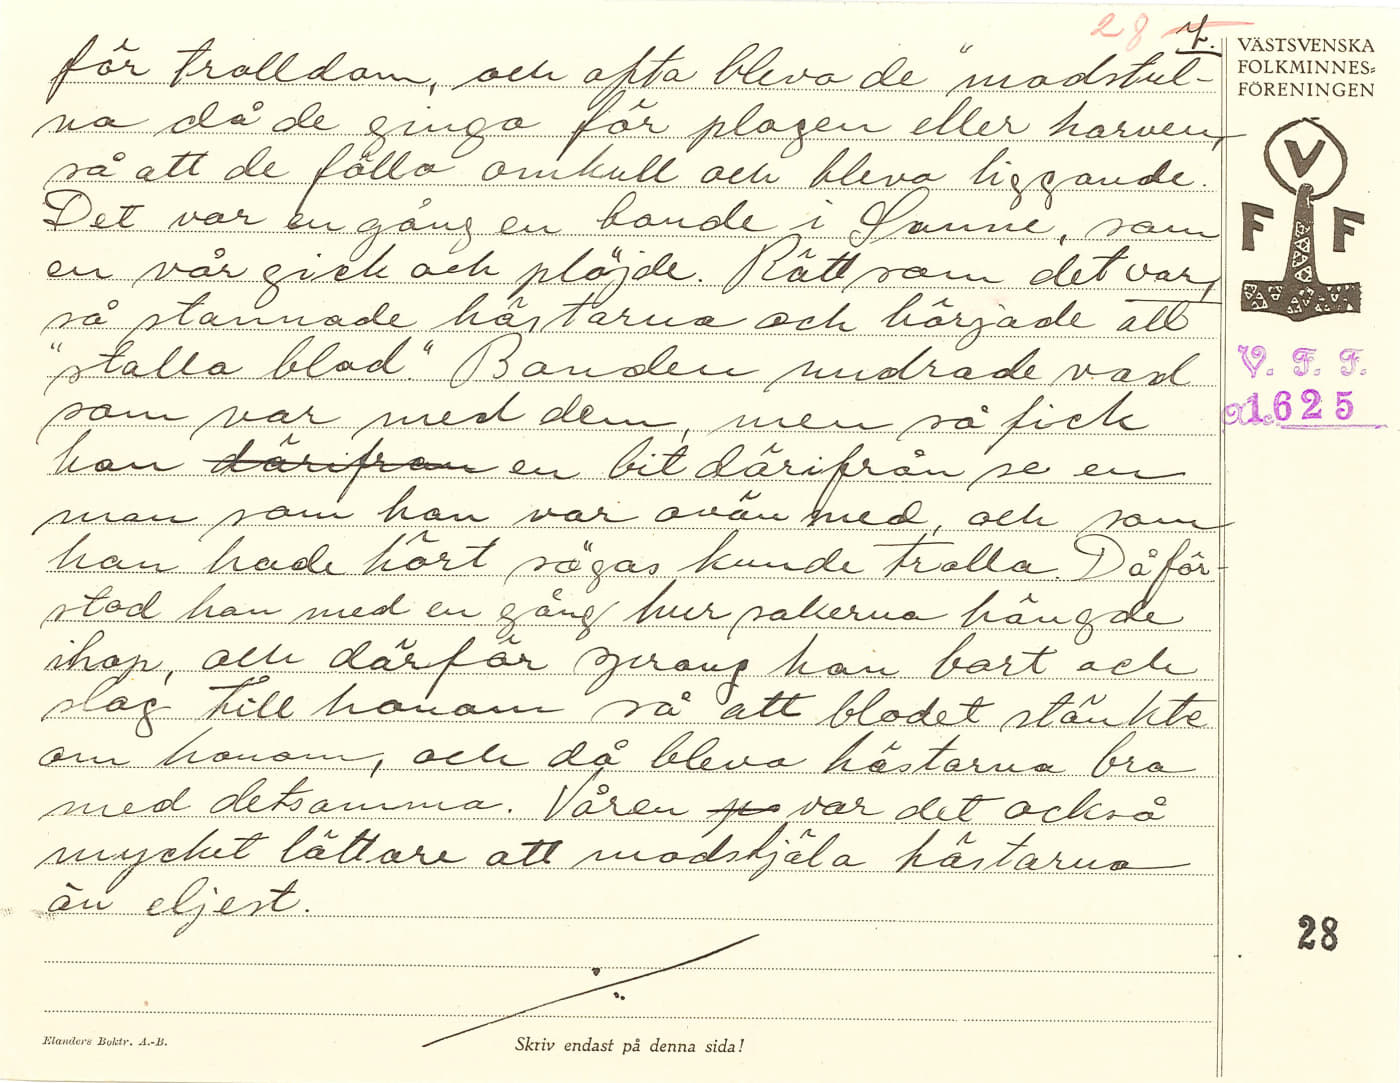 28 7.
för trolldom, och ofta blevo de "modstul-
na då de gingo för plogen eller harven,
så att de föllo omkull och blevo liggande.
Det var en gång en bonde i Sanne, som
en vår gick och plöjde. Rätt som det var,
så stannade hästarna och började att
"stalla blod." Bonden undrade vad
som var med dem, men så fick
han därifrån en bit därifrån se en
man som han var ovän med, och som
han hade hört sägas kunde trolla. Då för-
stod han med en gång hur sakerna hängde
ihop, och därför sprang han bort och
slog till honom så att blodet stänkte
om honom, och då blevo hästarna bra
med detsamma. Våren var det också
mycket lättare att modstjäla hästarna
än eljest.
VÄSTSVENSKA
FOLKMINNES-
FÖRENINGEN
V
F F
V. F. F.
1625
28
Elanders Boktr. A.-B.
Skriv endast på denna sida!